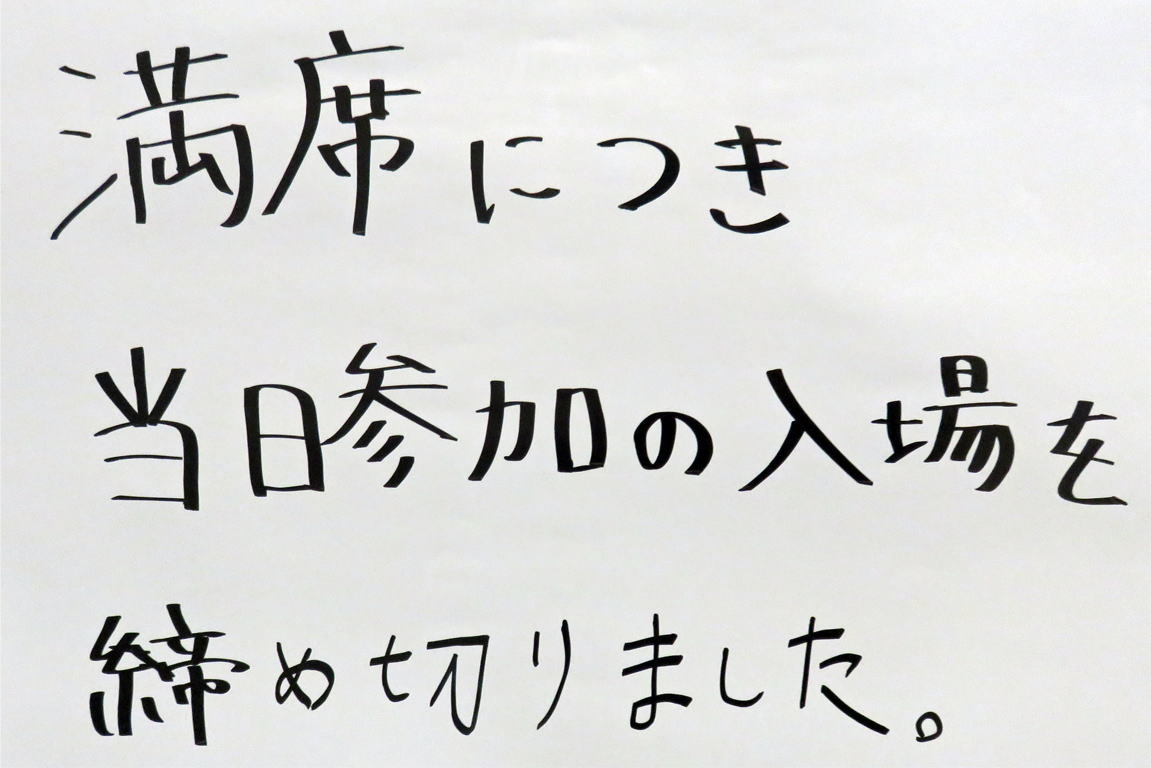 満席につき
当日参加の入場を
締め切りました。